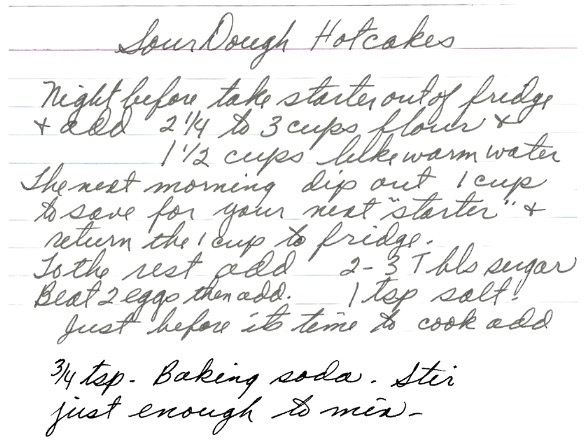 Sour Dough Hotcakes
Night before take starter out of fridge
+ add 2 1/4 to 3 cups flour +
1 1/2 cups lukewarm water
The next morning dip out 1 cup
to save for your next "starter" +
return the 1 cup to fridge.
To the rest add 2-3 Tbls sugar
Beat 2 eggs then add. 1 tsp salt.
Just before its time to cook add
3/4 tsp. Baking soda. Stir
just enough to mix-